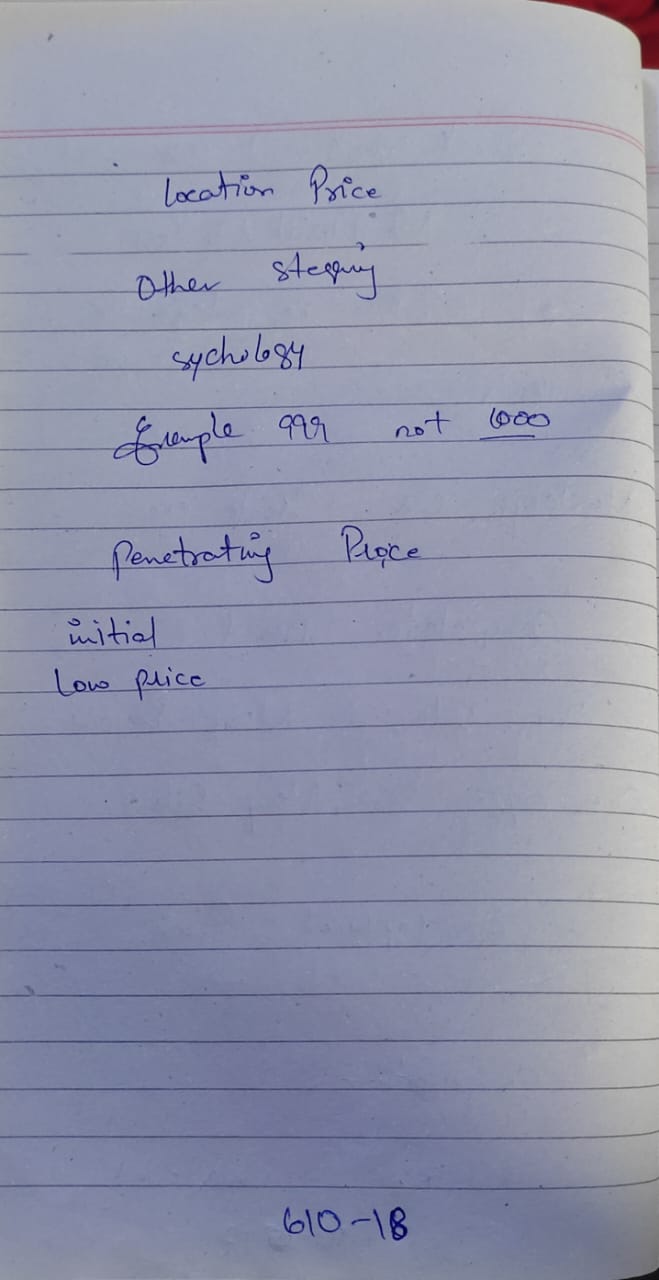 Location Price
Other
sychology
Example 999 not 1000
Penetrating Price
initial
Low price
610-18